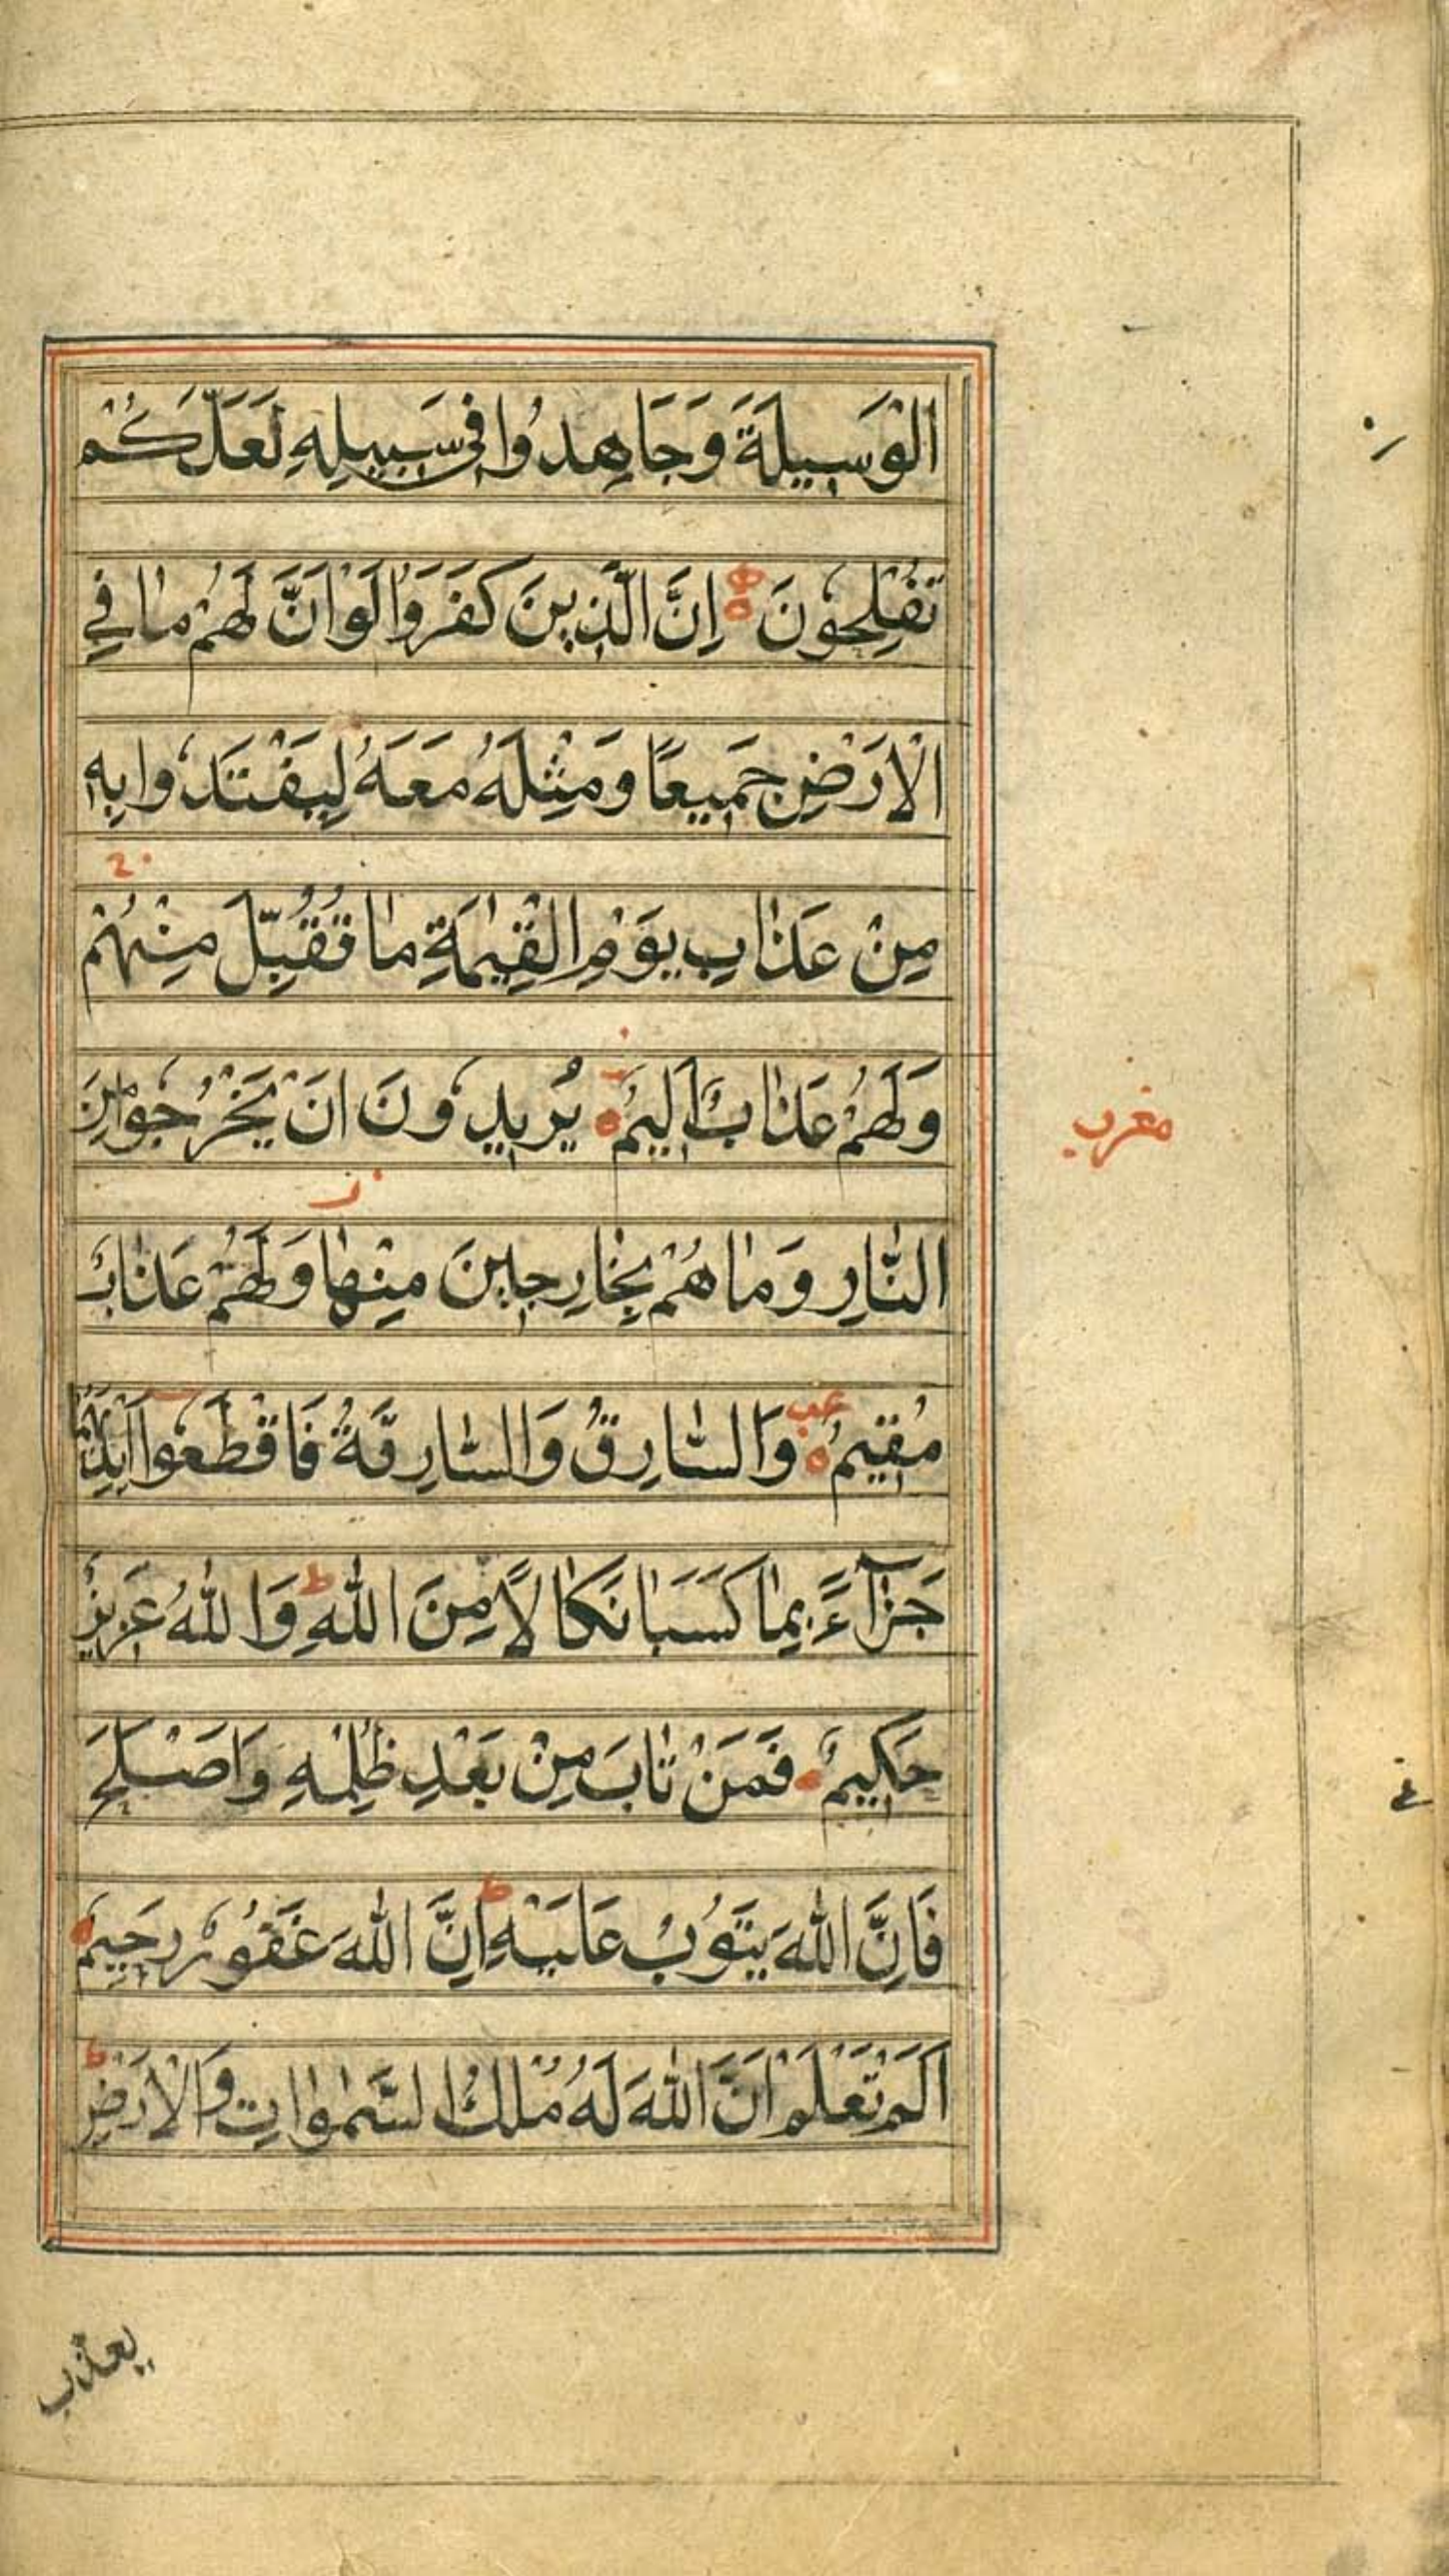 الْوَسِيلَةَ وَجَاهِدُوا فِي سَبِيلِهِ لَعَلَّكُمْ
تُفْلِحُونَ ه اِنَّ الَّذِينَ كَفَرُوا لَوْ اَنَّ لَهُمْ مٰا فِي
الْاَرْضِ جَمِيعًا وَمِثْلَهُ مَعَهُ لِيَفْتَدُوا بِهِ
مِنْ عَذٰابِ يَوْمِ الْقِيٰمَةِ مٰا تُقُبِّلَ مِنْهُمْ
وَلَهُمْ عَذٰابٌ اَلِيمٌ ه يُرِيدُونَ اَنْ يَخْرُجُوا مِنَ
مغرب
النّٰارِ وَمٰا هُمْ بِخٰارِجِينَ مِنْهٰا وَلَهُمْ عَذٰابٌ
مُقِيمٌ ه وَالسّٰارِقُ وَالسّٰارِقَةُ فَاقْطَعُوا اَيْدِيَهُمٰا
جَزٰآءً بِمٰا كَسَبٰا نَكٰالًا مِنَ اللّٰهِ ط وَاللّٰهُ عَزِيزٌ
حَكِيمٌ ه فَمَنْ تٰابَ مِنْ بَعْدِ ظُلْمِهِ وَاَصْلَحَ
فَاِنَّ اللّٰهَ يَتُوبُ عَلَيْهِ ط اِنَّ اللّٰهَ غَفُورٌ رَحِيمٌ ه
اَلَمْ تَعْلَمْ اَنَّ اللّٰهَ لَهُ مُلْكُ السَّمٰوٰاتِ وَالْاَرْضِ ط
يعذب